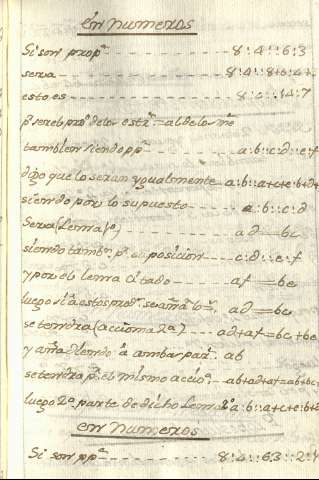 en numeros
Si son prop.n - - - 8:4::6:3
sera - - - 8:4::8+6:4+
esto es - - - 8:4::14:7
p.r ser el pro.to de los estr.s = al de los m.os
tambien siendo pp.n - - - a:b::c:d::e:f
digo que lo seran ygualmente - - a:b::a+c+e:b+d+
siendo por lo supuesto - - - a:b::c:d
Sera (Lema 1.o) ad=bc
siendo tamb.n p.r suposicion - - - c:d::e:f
y por el lema citado - - - af=be
luego si à estos prod.s se añad.e lo - ad=bc
se tendra (accioma 2.a) - - - ad+af=bc+be
y añadiendo à ambas par.s ab
se tendra p.r el mismo accio.a - - ab+ad+af=ab+bc+
luego 2.a parte de dicho Lema 2.o a:b::a+c+e:b+d
en numeros
Si son pp.n - - - 8:4::6:3::2:1